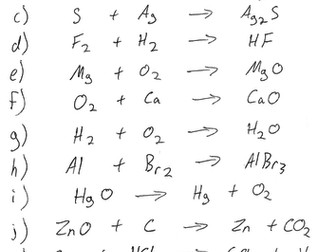 c) S + Ag → Ag₂S
d) F₂ + H₂ → HF
e) Mg + O₂ → MgO
f) O₂ + Ca → CaO
g) H₂ + O₂ → H₂O
h) Al + Br₂ → AlBr₃
i) HgO → Hg + O₂
j) ZnO + C → Zn + CO₂